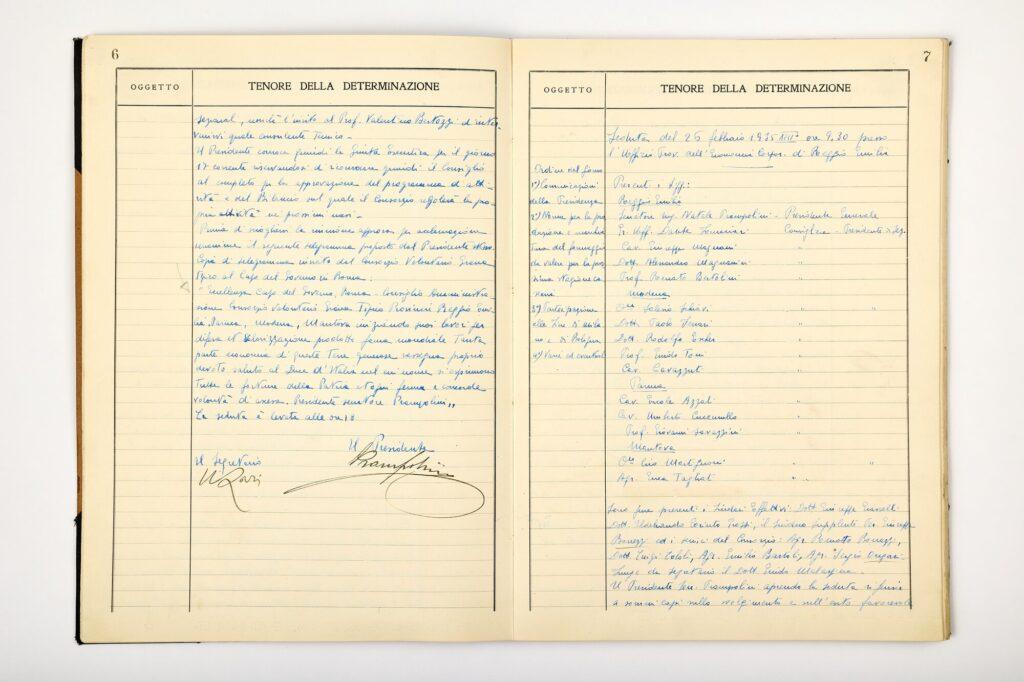 6
OGGETTO
TENORE DELLA DETERMINAZIONE
nonchè l'invito al Prof. Valentino Bertozzi d'inter-
venirvi quale consulente Tecnico -
Il Presidente convoca quindi la Giunta Esecutiva per il giorno
17 corrente riservandosi di riconvocare quindi il Consiglio
al completo per la approvazione del programma di atti-
vità e del Bilancio sul quale il Consorzio regolerà la pro-
pria attività nei prossimi mesi -
Prima di sciogliere la riunione approva per acclamazione
unanime il seguente telegramma proposto dal Presidente
Copia di telegramma inviato dal Consorzio Volontario Grana
Tipico al Capo del Governo in Roma:
"Eccellenza Capo del Governo, Roma - Consiglio Amministra-
zione Consorzio Volontario Grana Tipico Provincie Reggio Emi-
lia, Parma, Modena, Mantova iniziando suoi lavori per
difesa et valorizzazione prodotto fama mondiale Tanta
parte economia di queste Terre generose rassegna proprio
devoto saluto al Duce d'Italia nel cui nome si esprimono
Tutte le fortune della Patria et ogni ferma e consapevole
volontà d'ascesa. Presidente senatore Prampolini„
La seduta è levata alle ore 18
Il Presidente
Il Segretario
Prampolini
7
OGGETTO
TENORE DELLA DETERMINAZIONE
Seduta del 26 febbraio 1935 XIII° ore 9.30 presso
l'Ufficio Prov. dell'Economia Corpor. di Reggio Emilia
Ordine del giorno
1°) Comunicazioni
della Presidenza
2°) Norme per la pro
duzione e marchia
tura del formaggio
da valere per la pros
sima stagione ca
searia
3°) Partecipazione
alle Fiere di Mila
no e di Bologna
4°) Varie ed eventuali
Presenti i Sigg:
Reggio Emilia
Senatore Ing. Natale Prampolini - Presidente Generale
Gr. Uff. Dante Consigliere - Presidente di Sez.
Cav. Giuseppe Magnani "
Dott. Alessandro Magnanini "
Prof. Renato Bertolini "
Modena
On. " "
Dott. Paolo Ferrari "
Dott. Rodolfo "
Prof. Guido Toni "
Cav. Cavazzuti "
Parma
Cav. Ercole Azzali "
Cav. Umberto "
Prof. Giovanni Savazzini "
Mantova
On. Ciro Martignoni " "
Agr. Enea Tagliati "
Sono pure presenti i Sindaci Effettivi: Dott. Giuseppe
Dott. Ildebrando Corinto il Sindaco Supplente Per. Giuseppe
Bonezzi ed i soci del Consorzio: Agr. Bonezzi,
Dott. Luigi Agr. Emilio Bartoli, Agr. Sergio
Funge da segretario il Dott. Guido
Il Presidente Sen. Prampolini aprendo la seduta
a sommi capi sullo svolgimento e sull'esito favorevole